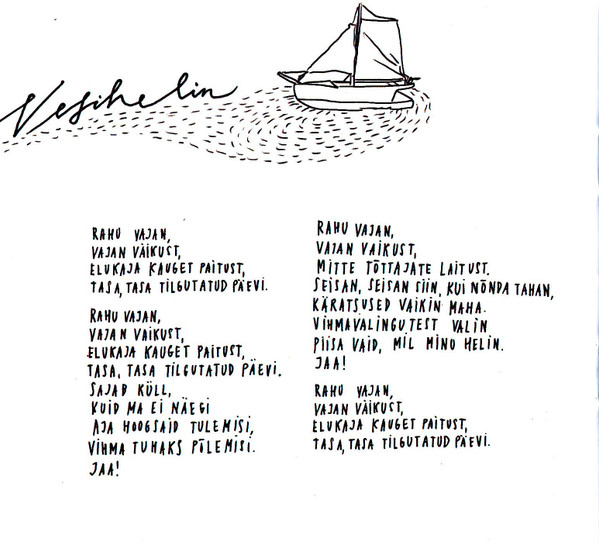 Vesihelin
RAHU VAJAN,
VAJAN VÄIKUST,
ELUKAJA KAUGET PAITUST,
TASA, TASA TILGUTATUD PÄEVI.
RAHU VAJAN,
VAJAN VAIKUST,
ELUKAJA KAUGET PAITUST,
TASA, TASA TILGUTATUD PÄEVI.
SAJAB KÜLL,
KUID MA EI NÄEGI
AJA HOOGSAID TULEMISI,
VIHMA TUHAKS PÕLEMISI.
JAA!
RAHU VAJAN,
VAJAN VAIKUST,
MITTE TÕTTAJATE LAITUST.
SEISAN, SEISAN SIIN, KUI NÕNDA TAHAN,
KÄRATSUSED VAIKIN MAHA.
VIHMAVALINGUTEST VALIN
PIISA VAID, MIL MINU HELIN.
JAA!
RAHU VAJAN,
VAJAN VÄIKUST,
ELUKAJA KAUGET PAITUST,
TASA, TASA TILGUTATUD PÄEVI.